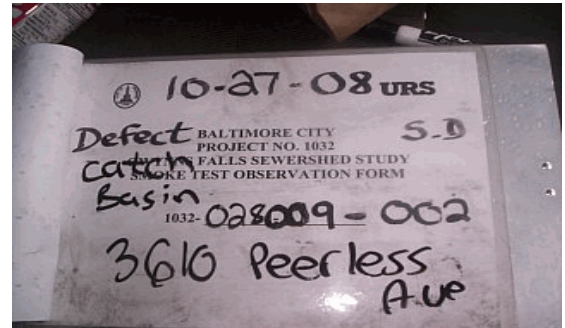 10-27-08 URS
Defect BALTIMORE CITY S-D
PROJECT NO. 1032
catch FALLS SEWERSHED STUDY
SMOKE TEST OBSERVATION FORM
Basin
1032- 028009-002
3610 Peerless
Ave